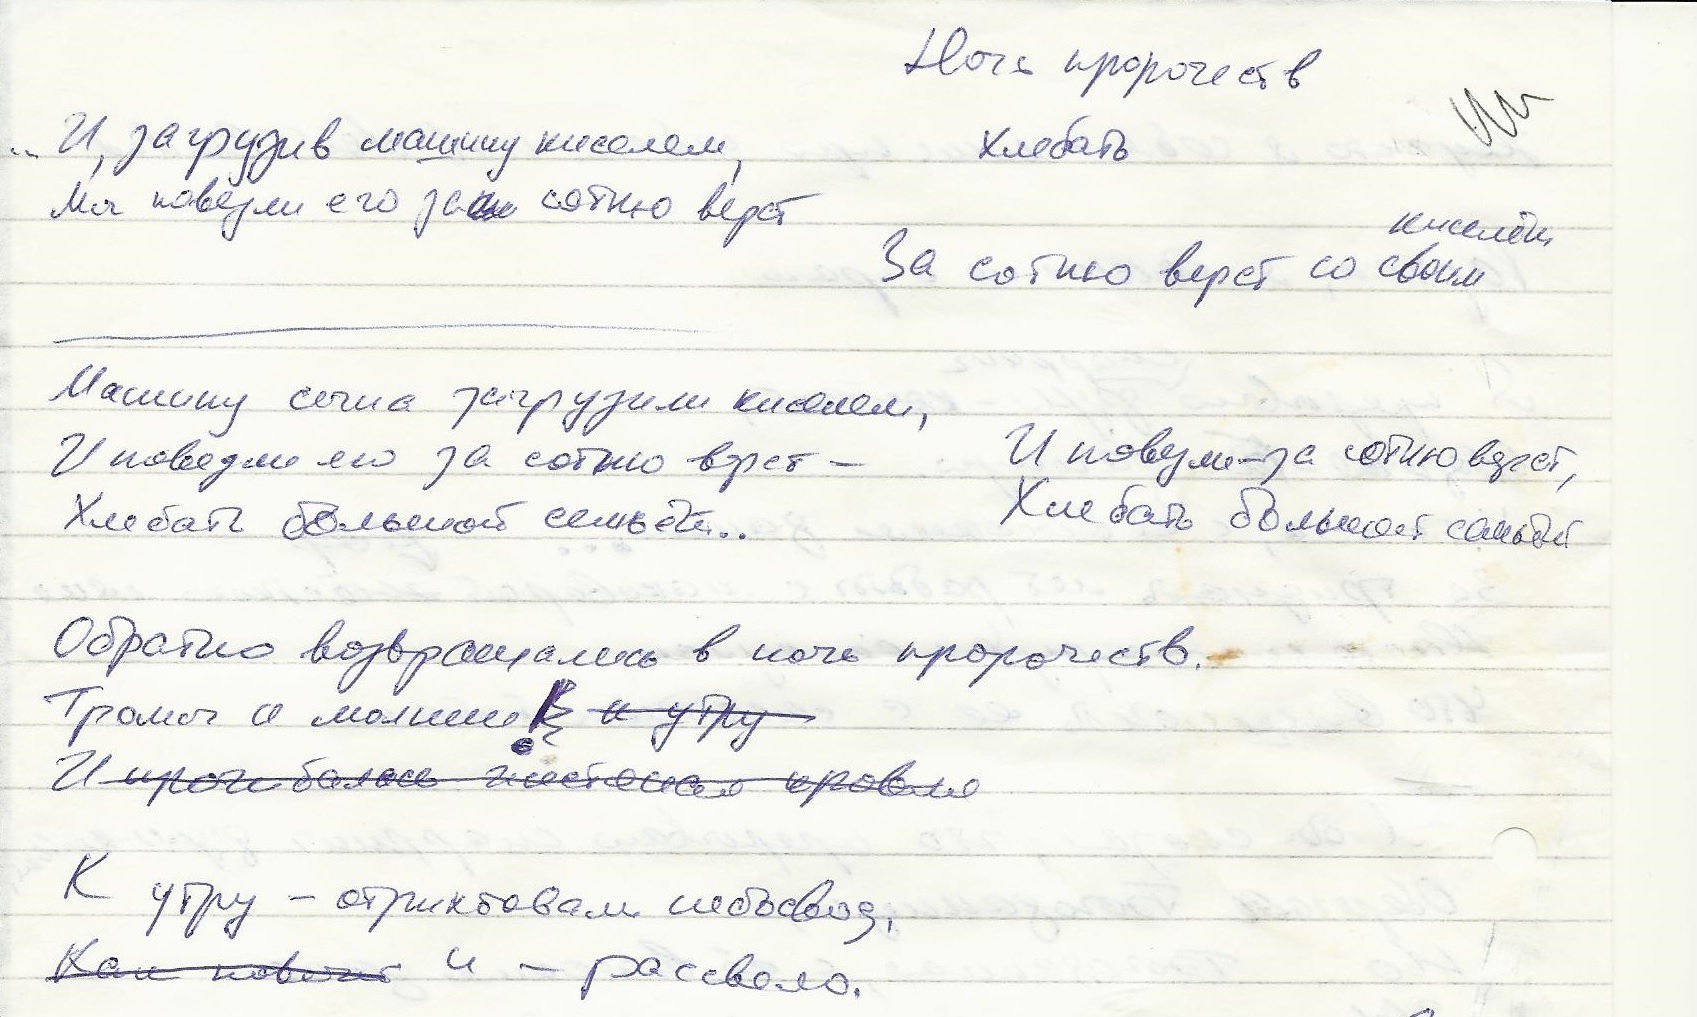 Ночь пророчеств
.. И, загрузив машину киселем,
Хлебать
Мы повезли его за сотню верст
киселём
За сотню верст со своим
Машину сына загрузили киселем,
И повезли его за сотню верст –
И повезли – за сотню верст,
Хлебать большой семьёй...
Хлебать большой семьёй
Обратно возвращались в ночь пророчеств.
Громы и молнии к утру
И прогибалась жестяная кровля
К утру – отрихтовали небосвод,
Как и – рассвело.